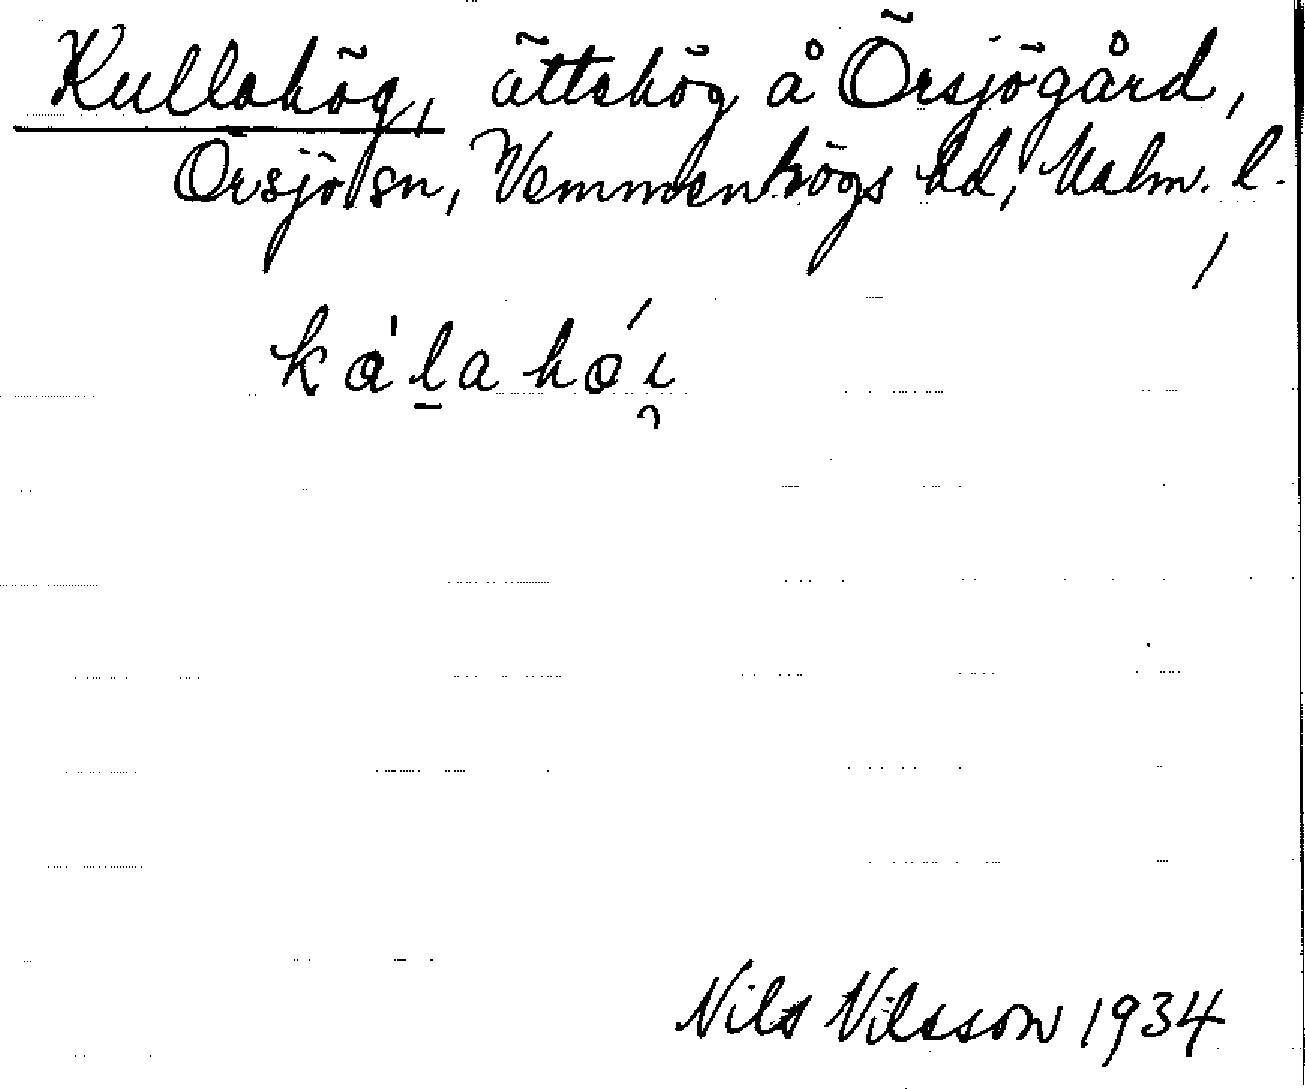 Kullahög, ättehög å Örsjögård,
Örsjö sn, Vemmenhögs hd, Malm. l.
Nils Nilsson 1934